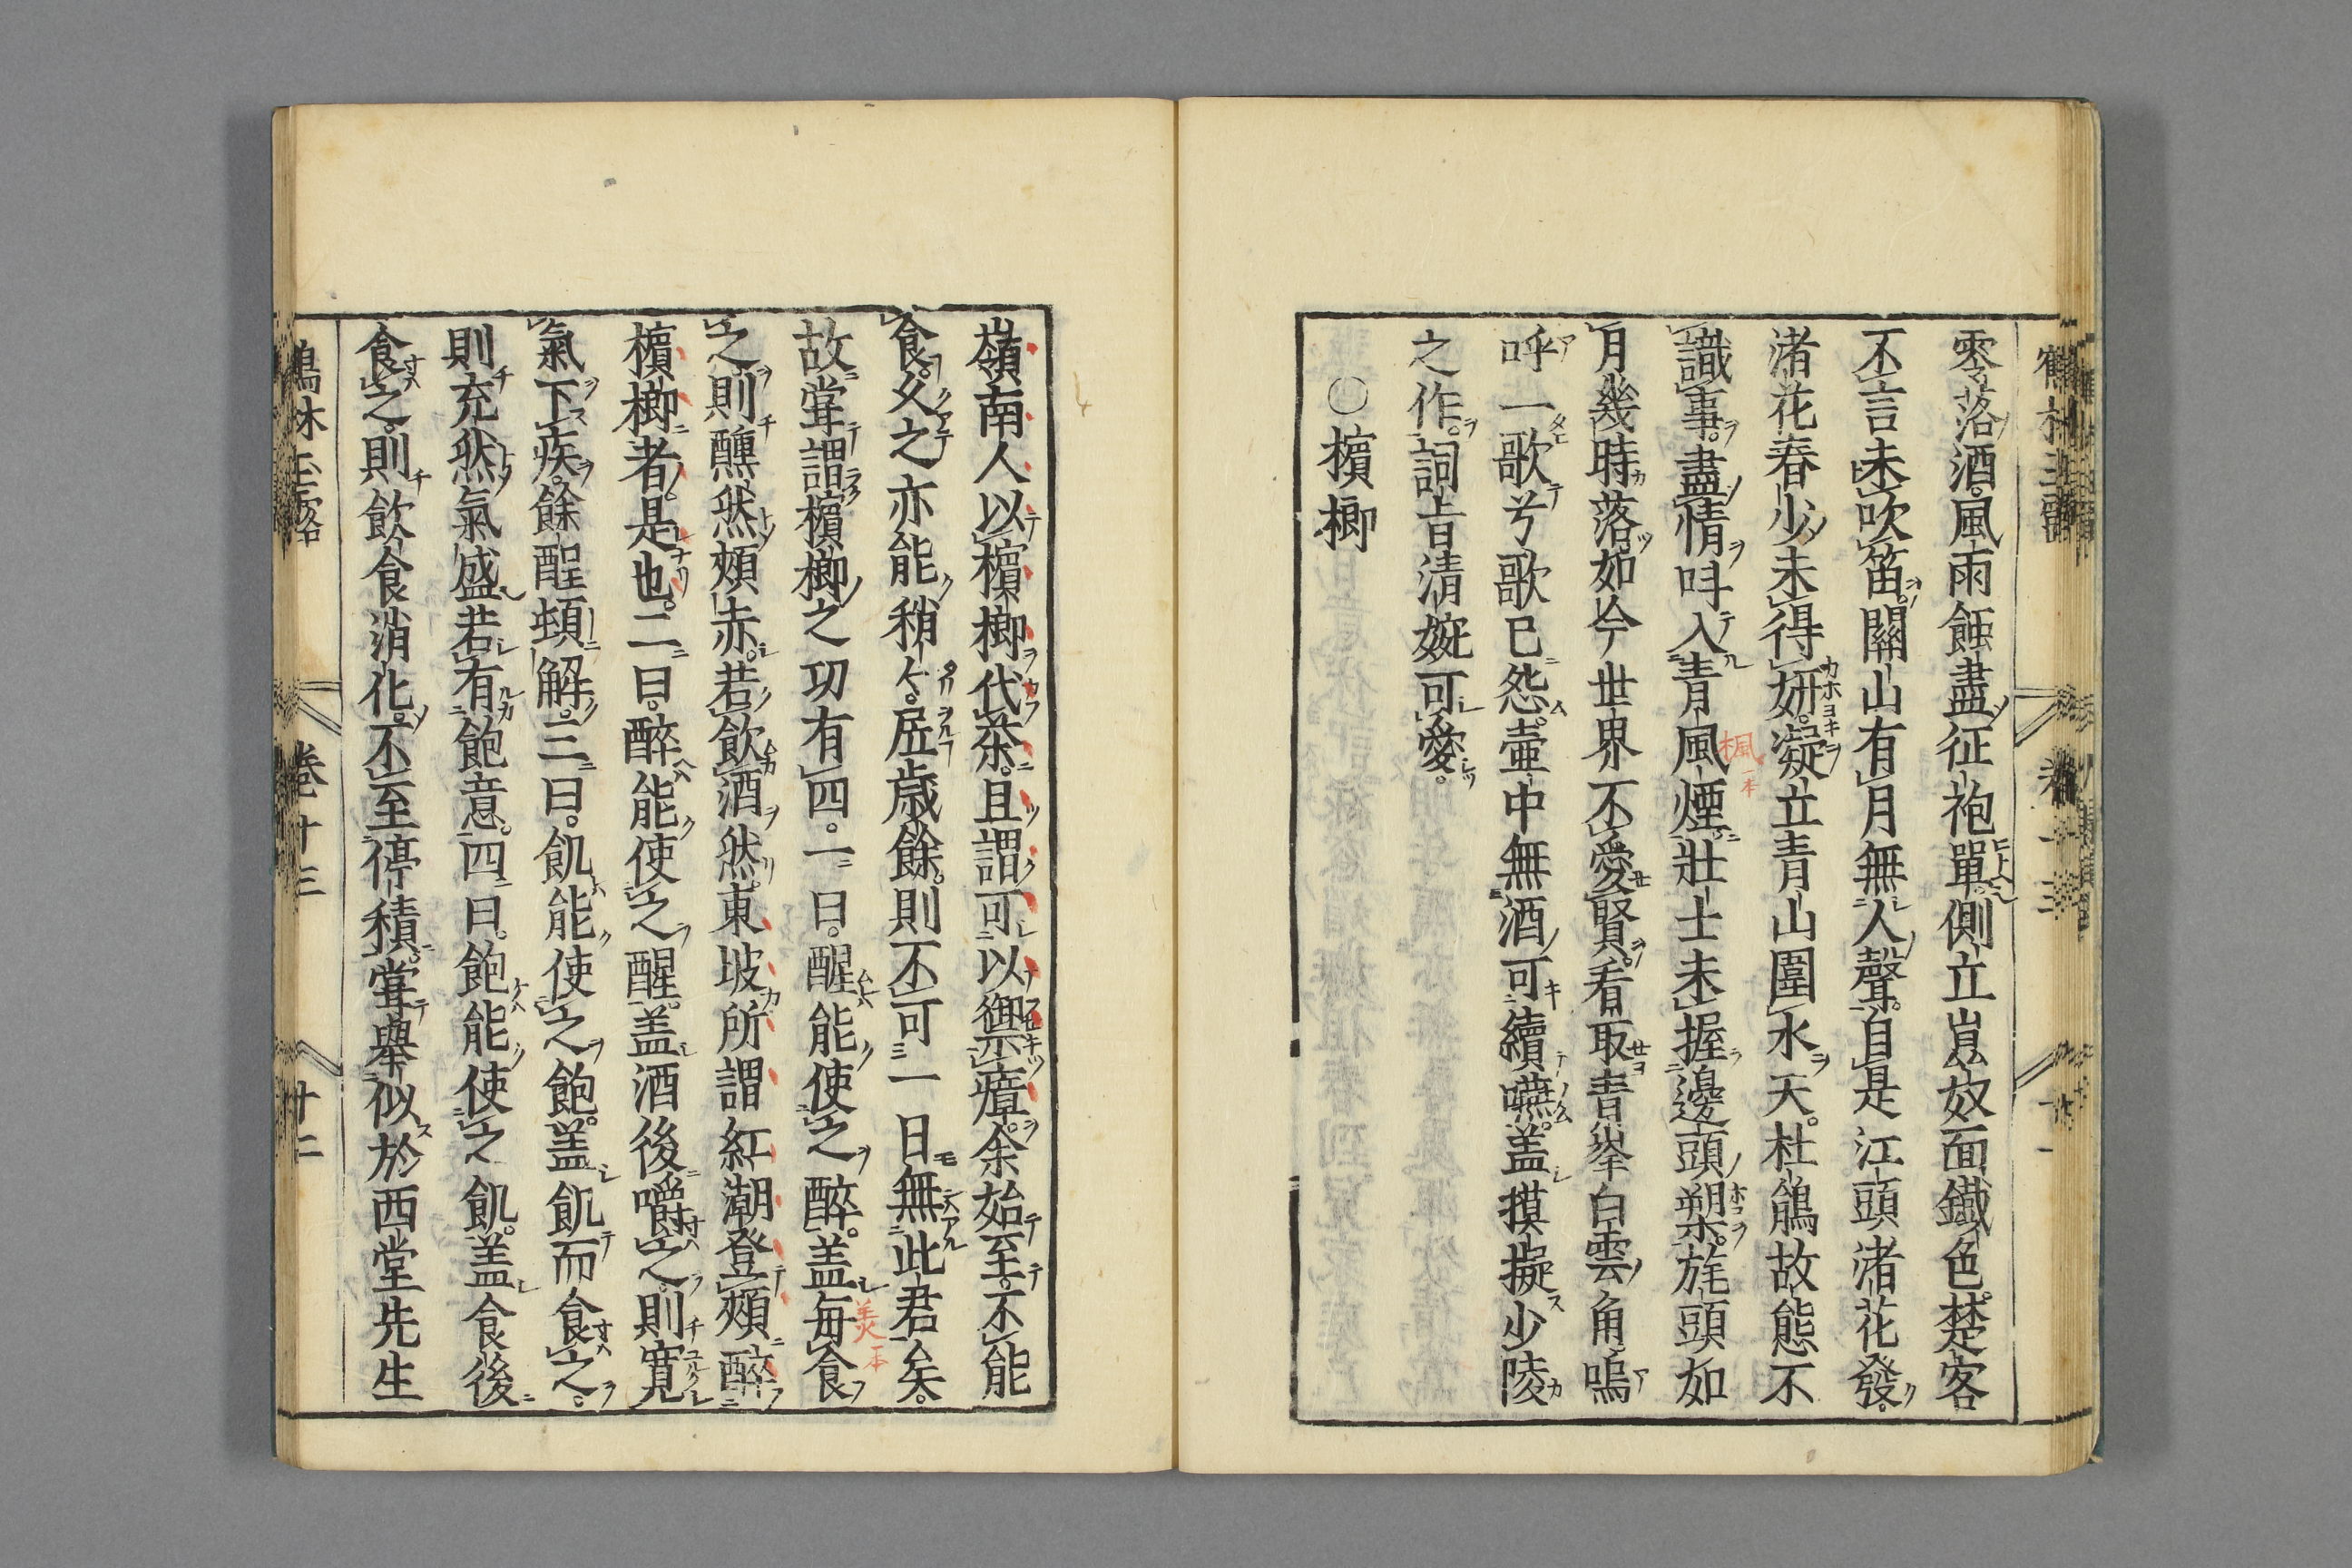 零落酒。風雨蝕盡征袍單。側立崑奴面鐵色。楚客
不言未吹笛。關山有月無人聲。自是江頭渚花發。
渚花春少未得妍。凝立青山圍水天。杜鵑故態不
識事。盡情呌入青風煙。壯士未握邊頭槊。旄頭如
月幾時落。如今世界不愛賢。看取青峯白雲角。嗚
呼一歌兮歌已怨。壷中無酒可續嚥。盖摸擬少陵
之作。詞旨清婉可愛。
○檳榔
嶺南人以檳榔代茶。且謂可以禦瘴。余始至。不能
食。久之亦能稍〻。居歳餘。則不可一日無此君矣。
故嘗謂檳榔之功有四。一曰。醒能使之醉。盖毎食
之。則醺然頰赤。若飲酒然。東坡所謂紅潮登頰醉
檳榔者。是也。二曰。醉能使之醒。盖酒後嚼之。則寛
氣下疾。餘酲頓解。三曰。飢能使之飽。盖飢而食之。
則充然氣盛。若有飽意。四曰。飽能使之飢。盖食後
食之。則飲食消化。不至停積。嘗舉似於西堂先生
卷十三
十二
楓一本
美一本